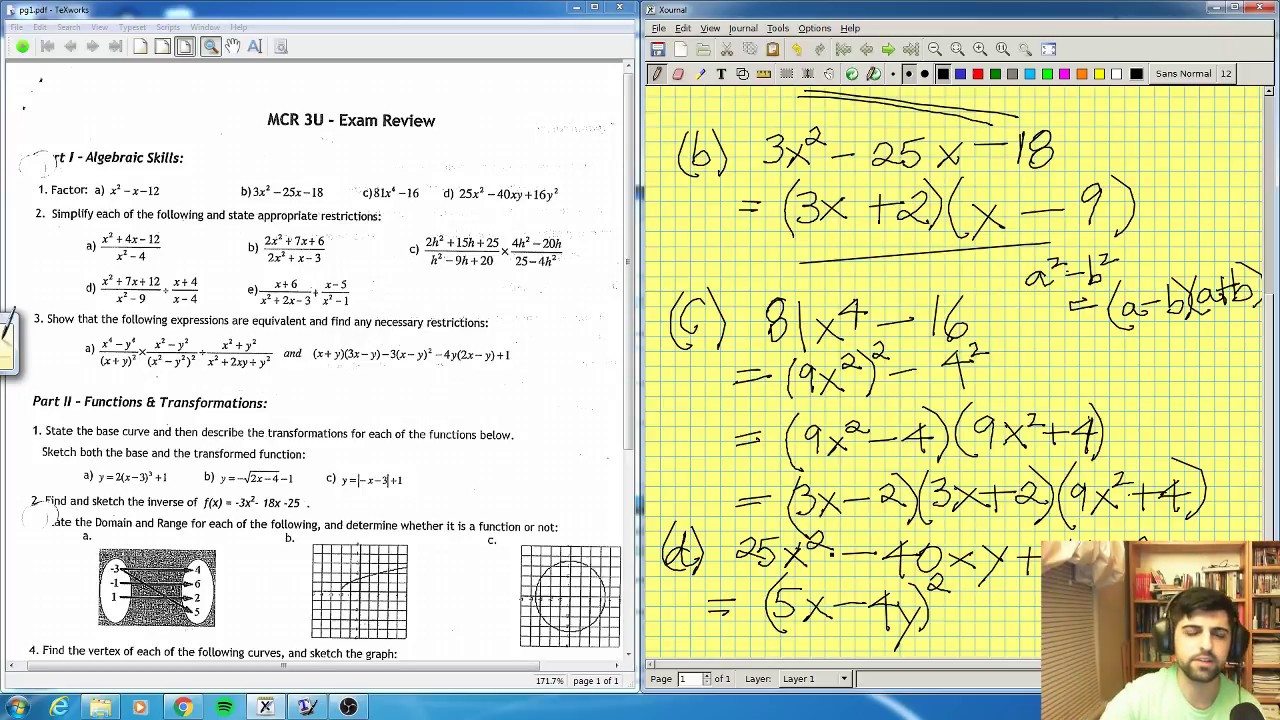 pg1.pdf - TeXworks
File Edit Search View Typeset Scripts Window Help
MCR 3U - Exam Review
rt I - Algebraic Skills:
1. Factor: a) x² − x − 12 b) 3x² − 25x − 18 c) 81x⁴ − 16 d) 25x² − 40xy + 16y²
2. Simplify each of the following and state appropriate restrictions:
a) (x² + 4x − 12)/(x² − 4) b) (2x² + 7x + 6)/(2x² + x − 3) c) (2h² + 15h + 25)/(h² − 9h + 20) × (4h² − 20h)/(25 − 4h²)
d) (x² + 7x + 12)/(x² − 9) ÷ (x + 4)/(x − 4) e) (x + 6)/(x² + 2x − 3) + (x − 5)/(x² − 1)
3. Show that the following expressions are equivalent and find any necessary restrictions:
a) (x⁴ − y⁴)/(x + y)² × (x² − y²)/(x² − y²)² ÷ (x² + y²)/(x² + 2xy + y²) and (x + y)(3x − y) − 3(x − y)² − 4y(2x − y) + 1
Part II - Functions & Transformations:
1. State the base curve and then describe the transformations for each of the functions below.
Sketch both the base and the transformed function:
a) y = 2(x − 3)³ + 1 b) y = −√(2x − 4) − 1 c) y = |− x − 3| + 1
2. Find and sketch the inverse of f(x) = -3x² - 18x -25 .
ate the Domain and Range for each of the following, and determine whether it is a function or not:
a. b. c.
-3 4
-1 6
1 2
5
4. Find the vertex of each of the following curves, and sketch the graph:
171.7% page 1 of 1
Xournal
File Edit View Journal Tools Options Help
Sans Normal 12
(b) 3x² − 25x − 18
= (3x + 2)(x − 9)
a² − b²
= (a − b)(a + b)
(c) 81x⁴ − 16
= (9x²)² − 4²
= (9x² − 4)(9x² + 4)
= (3x − 2)(3x + 2)(9x² + 4)
(d) 25x² − 40xy +
= (5x − 4y)²
Page 1 of 1 Layer: Layer 1